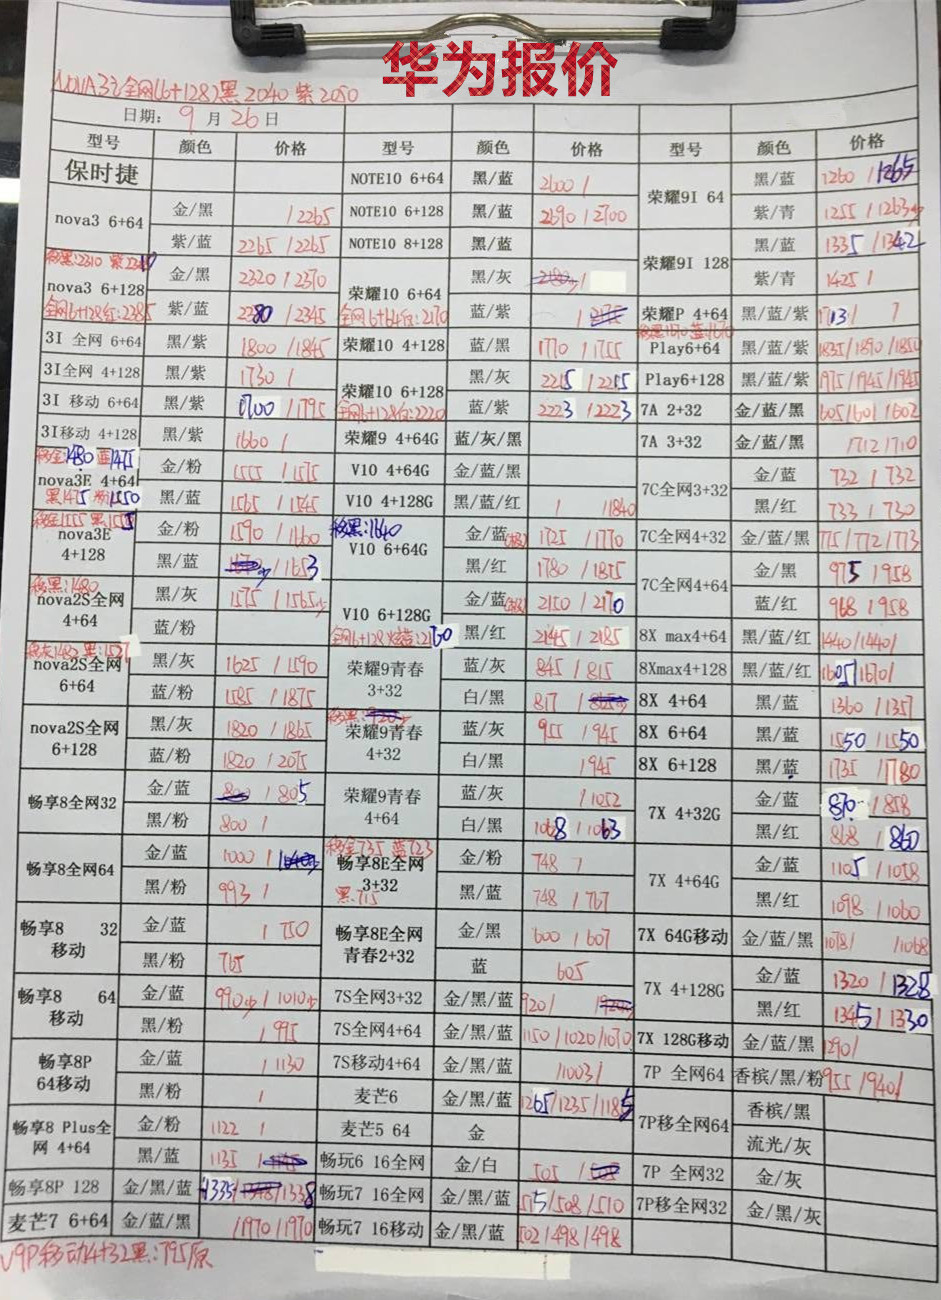 华为报价
NOVA3i全网(6+128)黑2040 紫2050
日期: 9月26日
型号 颜色 价格 型号 颜色 价格 型号 颜色 价格
保时捷 NOTE10 6+64 黑/蓝 2600 / 荣耀9I 64 黑/蓝 1260 / 1265
nova3 6+64 金/黑 / 2265 NOTE10 6+128 黑/蓝 2690 / 2700 紫/青 1255 / 1263
紫/蓝 2265 / 2265 NOTE10 8+128 黑/蓝 荣耀9I 128 黑/蓝 1335 / 1342
nova3 6+128 金/黑 2320 / 2370 荣耀10 6+64 黑/灰 紫/青 1425 /
全网6+128红:2385 紫/蓝 2280 / 2345 全网6+64红:2170 蓝/紫 / 荣耀P 4+64 黑/蓝/紫 1713 /
3I 全网 6+64 黑/紫 1800 / 1845 荣耀10 4+128 蓝/黑 1770 / 1755 Play6+64 黑/蓝/紫 1835 / 1890 / 1850
3I全网 4+128 黑/紫 1730 / 荣耀10 6+128 黑/灰 2215 / 2215 Play6+128 黑/蓝/紫 1975 / 1945 / 1945
3I 移动 6+64 黑/紫 1700 / 1795 全网6+128红:2220 蓝/紫 2223 / 2223 7A 2+32 金/蓝/黑 605 / 601 / 602
3I移动 4+128 黑/紫 1660 / 荣耀9 4+64G 蓝/灰/黑 7A 3+32 金/蓝/黑 / 712 / 710
移金1480 蓝1475
nova3E 4+64 金/粉 1555 / 1575 V10 4+64G 金/蓝/黑 7C全网3+32 金/蓝 732 / 732
黑/蓝 1565 / 1545 V10 4+128G 黑/蓝/红 / / 1840 黑/红 733 / 730
移金1555 黑1555
nova3E 4+128 金/粉 1590 / 1660 移黑:1640 V10 6+64G 金/蓝 1725 / 1770 7C全网4+32 金/蓝/黑 775 / 772 / 773
黑/蓝 / 1653 黑/红 1780 / 1855 7C全网4+64 金/黑 975 / 958
移黑:1480
nova2S全网 4+64 黑/灰 1575 / 1565 V10 6+128G 金/蓝 2150 / 2170 蓝/红 968 / 958
蓝/粉 黑/红 2145 / 2185 8X max4+64 黑/蓝/红 1440 / 1440 /
nova2S全网 6+64 黑/灰 1625 / 1590 荣耀9青春 3+32 蓝/灰 845 / 815 8Xmax4+128 黑/蓝/红 1605 / 1670 /
蓝/粉 1585 / 1875 白/黑 817 / 8X 4+64 黑/蓝 1360 / 1357
nova2S全网 6+128 黑/灰 1820 / 1865 荣耀9青春 4+32 蓝/灰 955 / 945 8X 6+64 黑/蓝 1550 / 1550
蓝/粉 1820 / 2075 白/黑 1945 8X 6+128 黑/蓝 1735 / 1780
畅享8全网32 金/蓝 800 / 805 荣耀9青春 4+64 蓝/灰 / 1052 7X 4+32G 金/蓝 870 / 858
黑/粉 800 / 白/黑 1068 / 1063 黑/红 868 / 860
畅享8全网64 金/蓝 1000 / 移金735 蓝723 畅享8E全网 3+32 金/粉 748 / 7X 4+64G 金/蓝 1105 / 1058
黑/粉 993 / 黑:715 黑/蓝 748 / 767 黑/红 1098 / 1060
畅享8 32 移动 金/蓝 / 750 畅享8E全网 青春2+32 金/黑 600 / 607 7X 64G移动 金/蓝/黑 1078 / / 1068
黑/粉 765 蓝 605 7X 4+128G 金/蓝 1320 / 1328
畅享8 64 移动 金/蓝 990 / 1010 7S全网3+32 金/黑/蓝 920 / 黑/红 1345 / 1330
黑/粉 / 995 7S全网4+64 金/黑/蓝 1150 / 1020 / 1070 7X 128G移动 金/蓝/黑 1290 /
畅享8P 64移动 金/蓝 / 1130 7S移动4+64 金/黑/蓝 / 1003 / 7P 全网64 香槟/黑/粉 955 / 940 /
黑/粉 / 麦芒6 金/黑/蓝 1265 / 1235 / 1185 7P移全网64 香槟/黑
畅享8 Plus全网 4+64 金/粉 1122 / 麦芒5 64 金 流光/灰
黑/蓝 1135 / 畅玩6 16全网 金/白 505 / 7P 全网32 金/灰
畅享8P 128 金/黑/蓝 1335 / / 1338 畅玩7 16全网 金/黑/蓝 515 / 508 / 510 7P移全网32 金/黑/灰
麦芒7 6+64 金/蓝/黑 / 1970 / 1970 畅玩7 16移动 金/黑/蓝 502 / 498 / 498
V9P移动4+32黑:795原